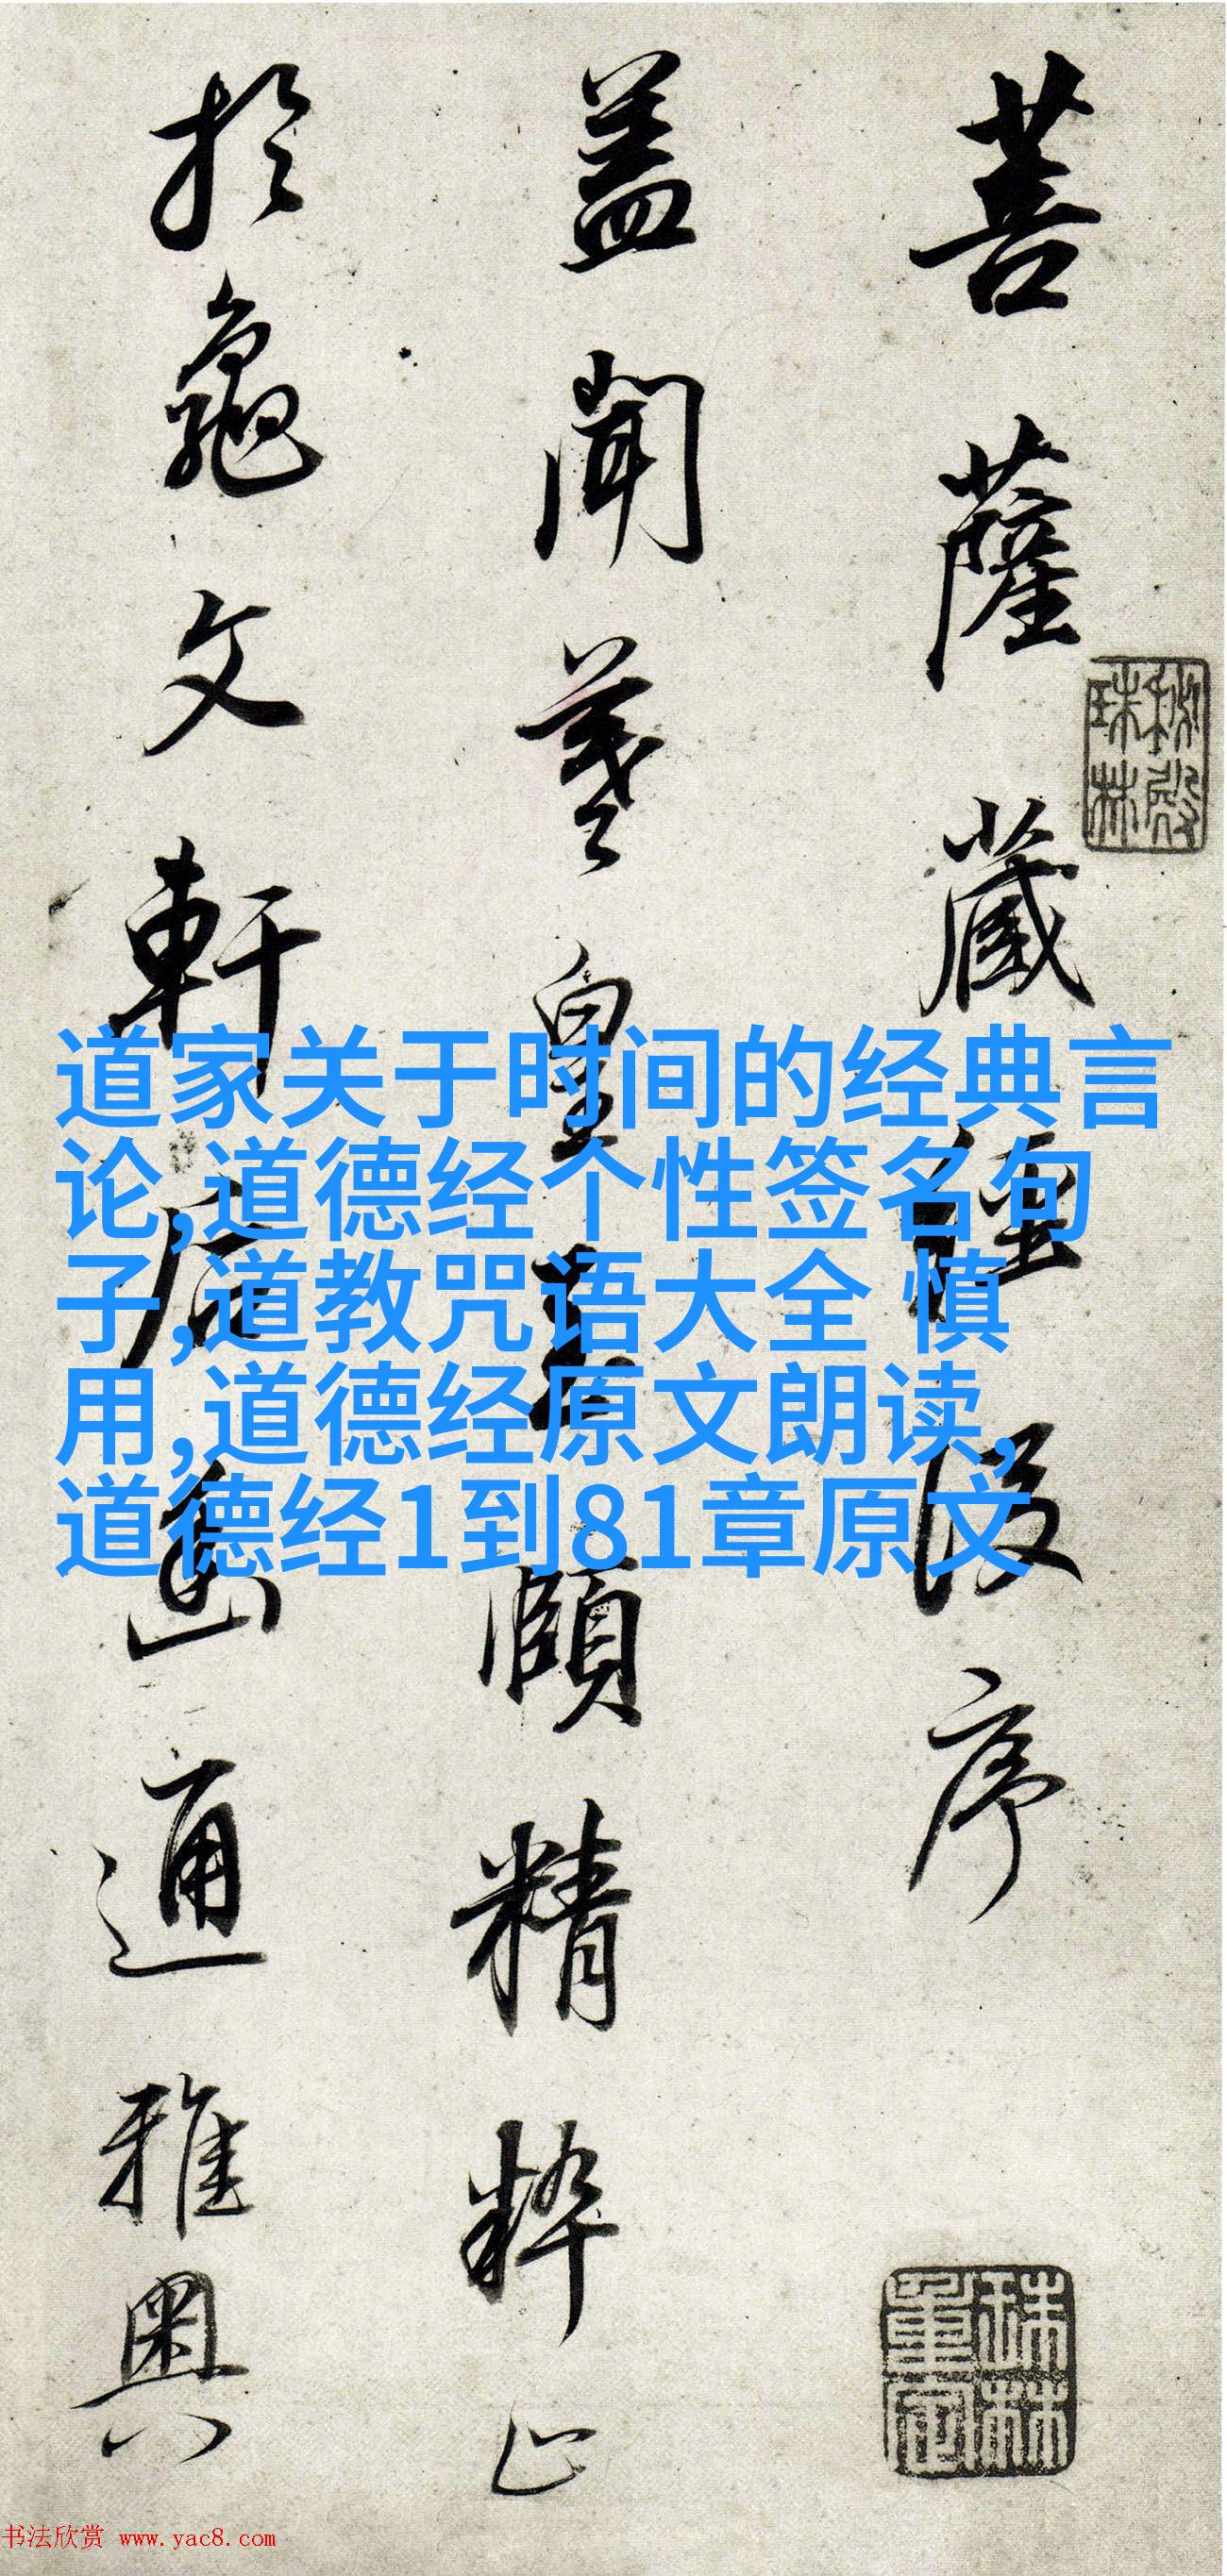 菩薩藏經後序
蓋聞羲皇至賾精粹止
於龜文軒后幽通雅奧
秘殿珠林
珠林重定
道家关于时间的经典言
论,道德经个性签名句
子,道教咒语大全 慎
用,道德经原文朗读,
道德经1到81章原文
书法欣赏 www.yac8.com